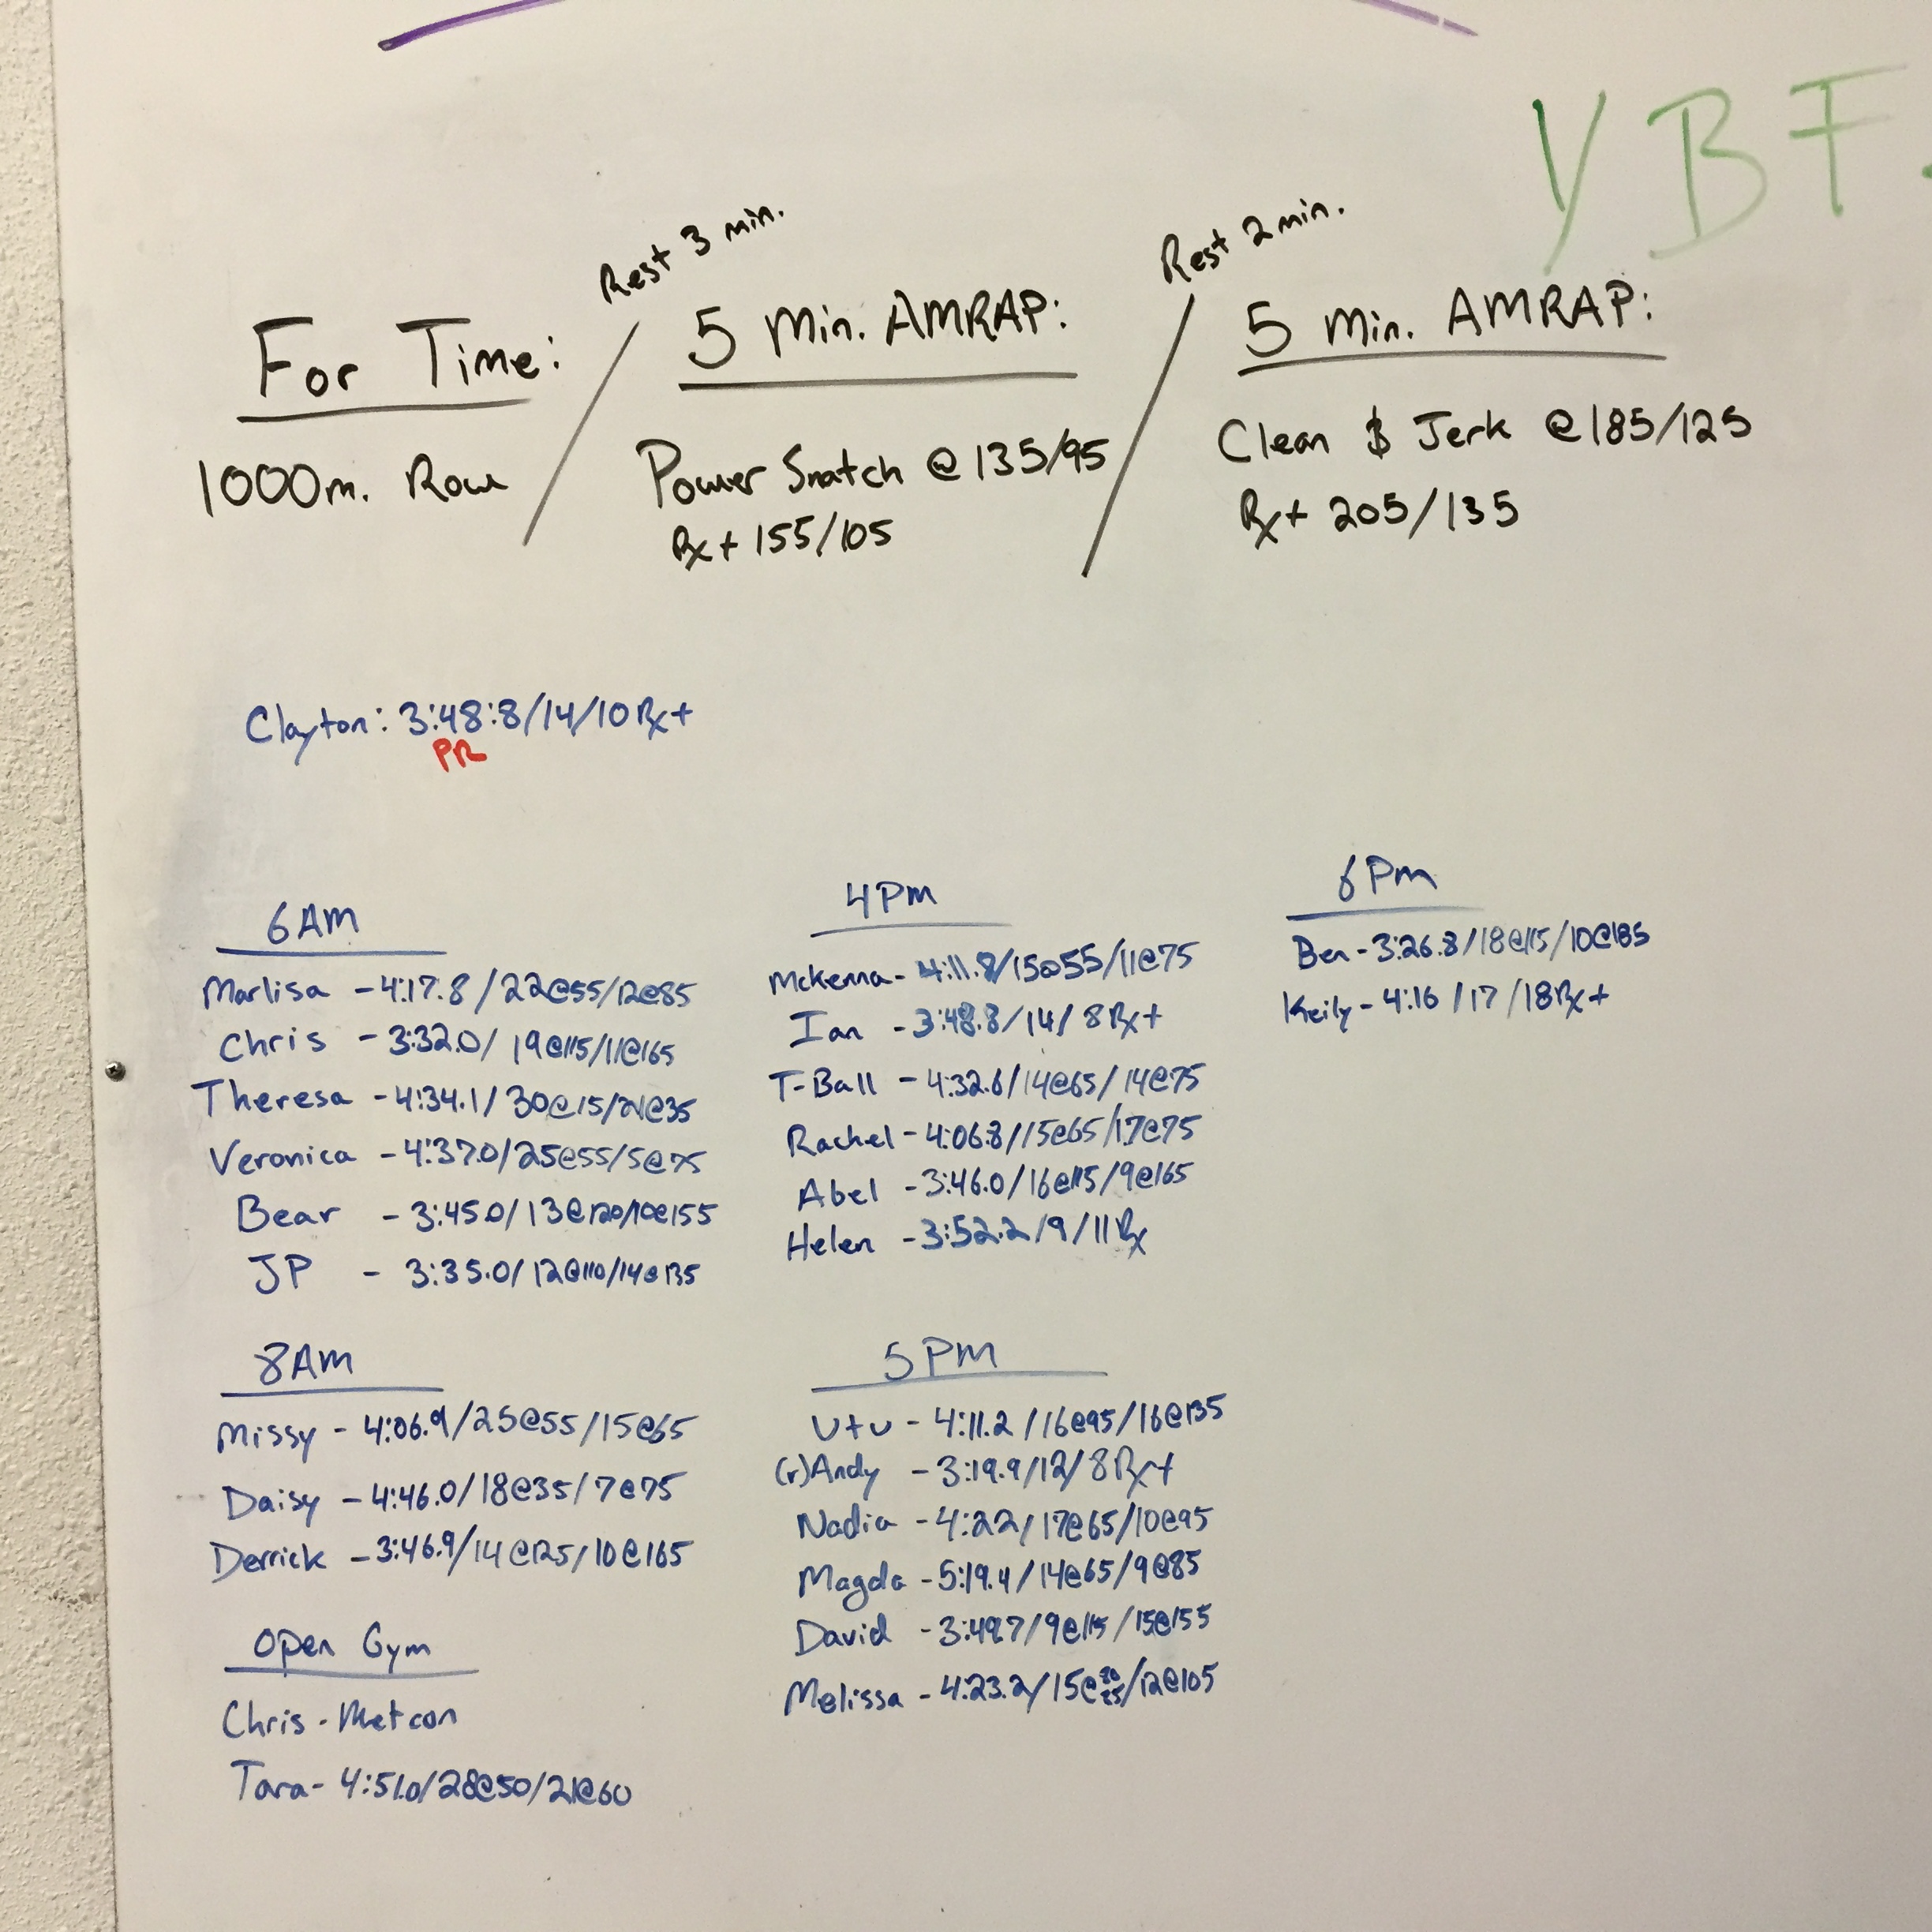 YBF.
Rest 3 min.
Rest 2 min.
For Time:
1000m. Row
5 Min. AMRAP:
Power Snatch @ 135/95
Rx+ 155/105
5 Min. AMRAP:
Clean & Jerk @ 185/125
Rx+ 205/135
Clayton: 3:48:8/14/10 Rx+
PR
6AM
Marlisa - 4:17.8/22@55/12@85
Chris - 3:32.0/19@115/11@165
Theresa - 4:34.1/30@15/21@35
Veronica - 4:37.0/25@55/5@75
Bear - 3:45.0/13@120/10@155
JP - 3:35.0/12@110/14@135
8AM
Missy - 4:06.9/25@55/15@65
Daisy - 4:46.0/18@35/7@75
Derrick - 3:46.9/14@125/10@165
Open Gym
Chris - Metcon
Tara - 4:51.0/28@50/21@60
4PM
McKenna - 4:11.8/15@55/11@75
Ian - 3:48.8/14/8 Rx+
T-Ball - 4:32.6/14@65/14@75
Rachel - 4:06.8/15@65/17@75
Abel - 3:46.0/16@115/9@165
Helen - 3:52.2/9/11 Rx
5PM
Utu - 4:11.2/16@95/16@135
(r)Andy - 3:19.9/12/8 Rx+
Nadia - 4:22/17@65/10@95
Magda - 5:19.4/14@65/9@85
David - 3:49.7/9@115/15@155
Melissa - 4:23.2/15@ /12@105
6PM
Ben - 3:26.8/18@115/10@185
Keily - 4:16/17/18 Rx+